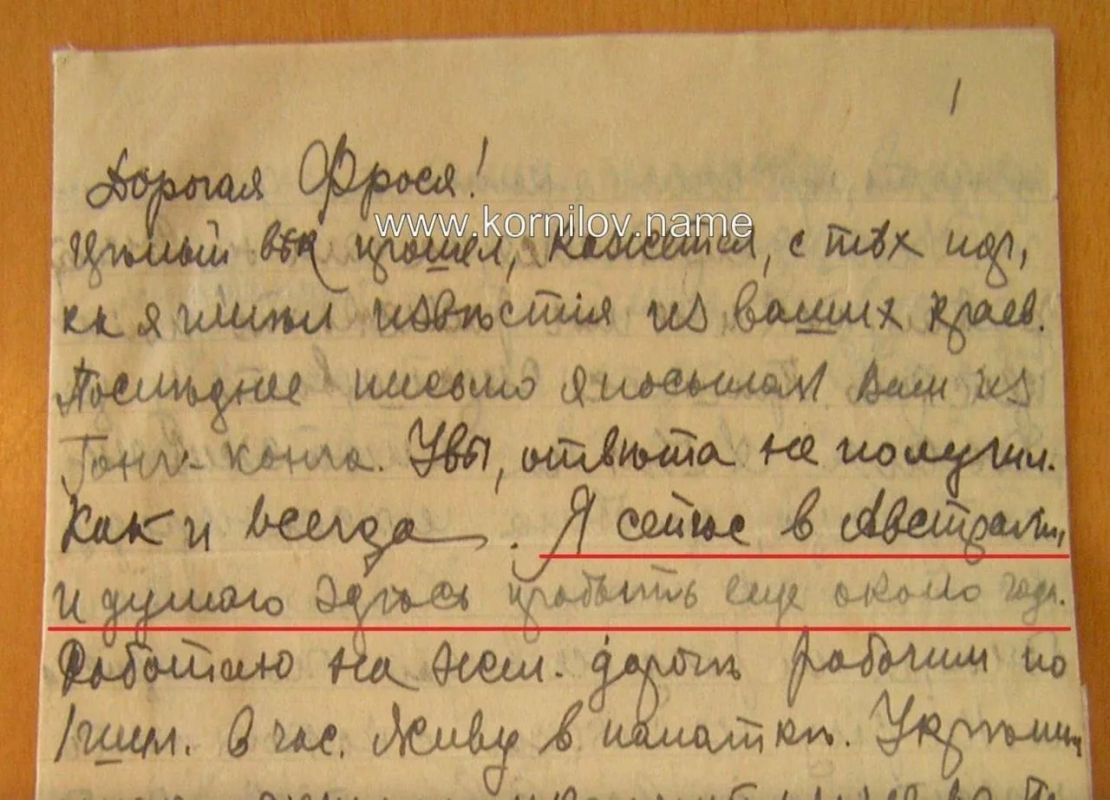 1
Дорогая Фрося!
www.kornilov.name
Цѣлый вѣк прошел, кажется, с тѣх пор,
как я имѣл извѣстия из ваших краев.
Послѣднее письмо я посылал Вам из
Гонг-конга. Увы, отвѣта не получил.
Как и всегда. Я сейчас в Австралии,
и думаю здѣсь пробыть еще около года.
Работаю на жел. дорогѣ рабочим по
1 шил. в час. Живу в палаткѣ.